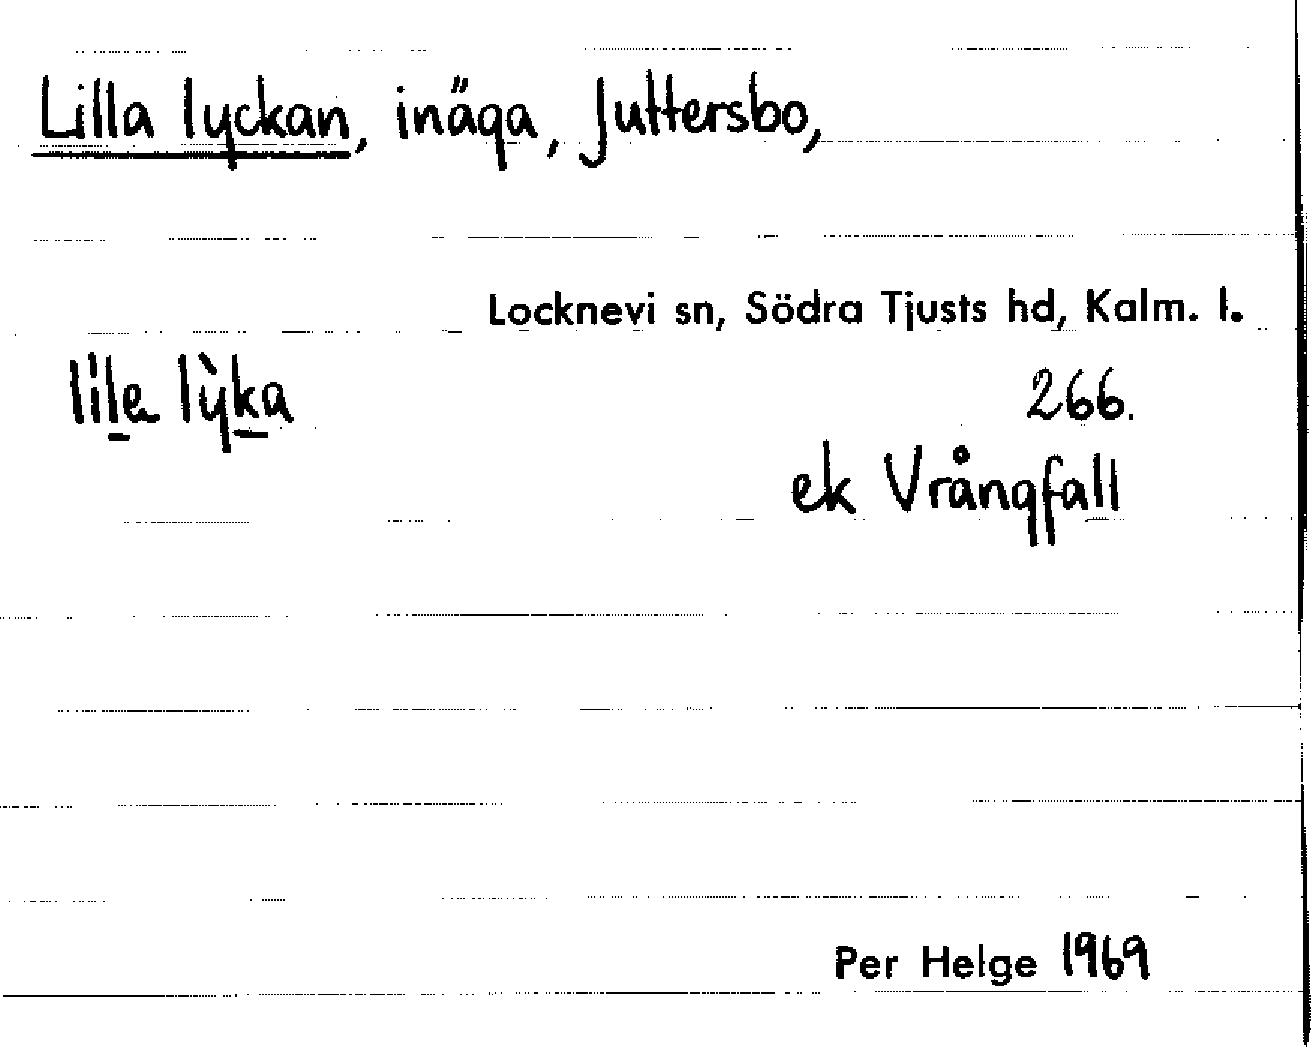 Lilla lyckan, inäga, Juttersbo,
Locknevi sn, Södra Tjusts hd, Kalm. l.
lila lỳka
266.
ek Vrångfall
Per Helge 1969